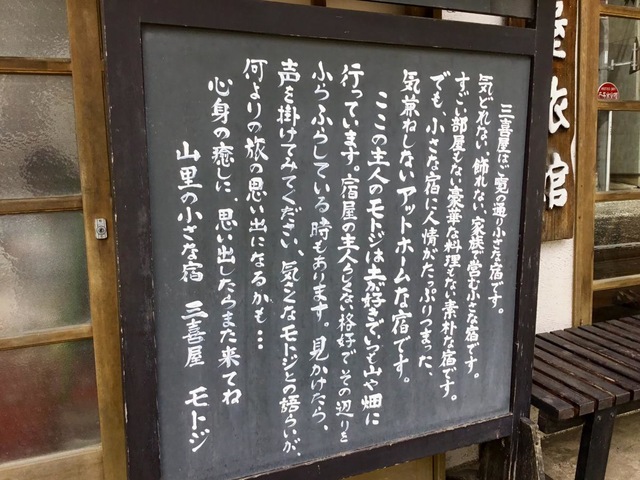 三喜屋はご覧の通り小さな宿です。
気どれない、飾れない、家族で営む小さな宿です。
すごい部屋もない、豪華な料理もない素朴な宿です。
でも、小さな宿に人情がたっぷりつまった、
気兼ねしないアットホームな宿です。
ここの主人のモトジは土が好きでいつも山や畑に
行っています。宿屋の主人らしくない格好でその辺りを
ふらふらしている時もあります。見かけたら、
声を掛けてみてください、気さくなモトジとの語らいが、
何よりの旅の思い出になるかも…
心身の癒しに、思い出したらまた来てね
山里の小さな宿 三喜屋 モトジ
屋旅館